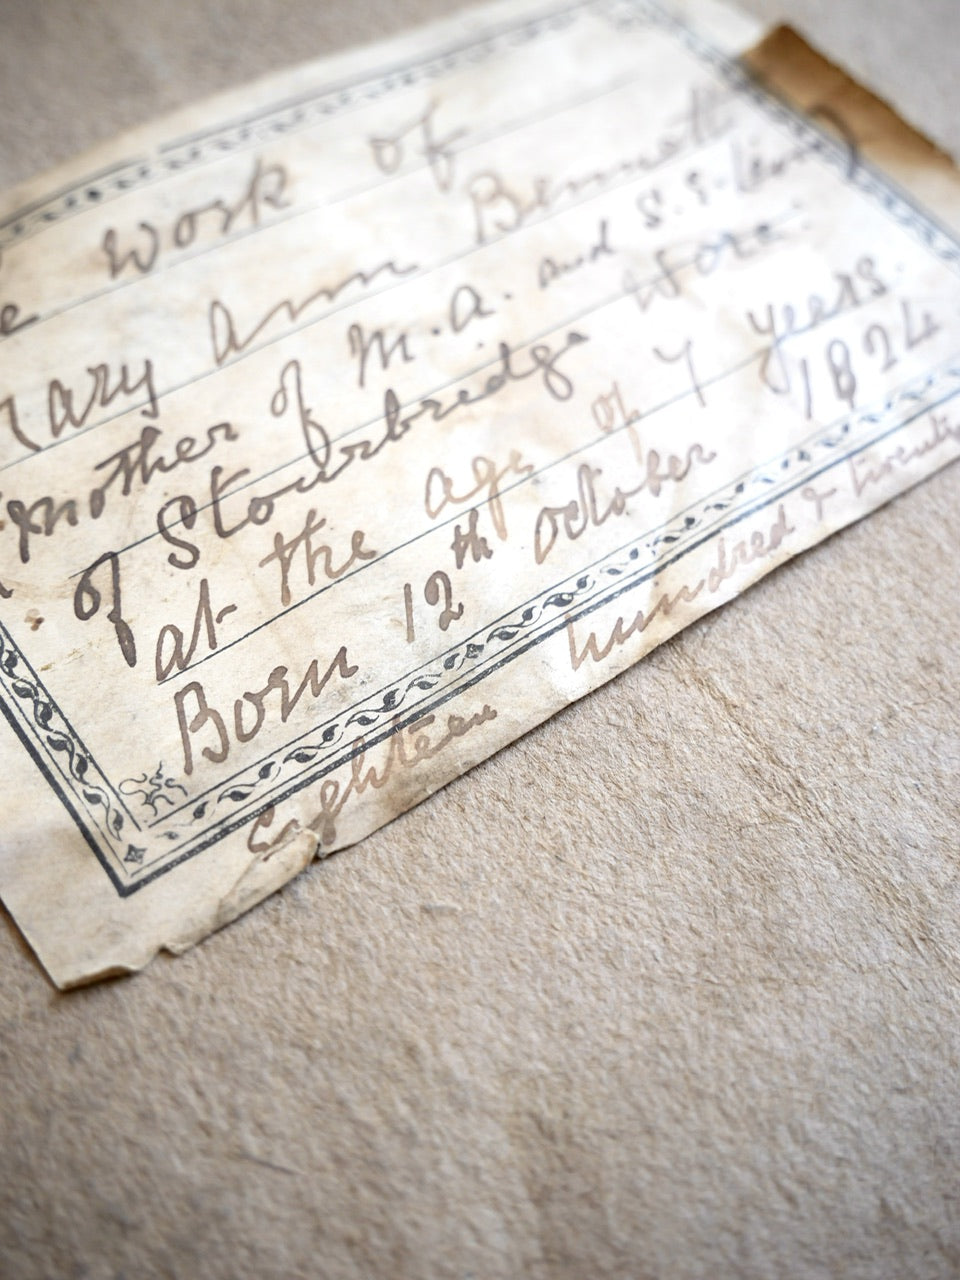 e Work of
Mary Ann Bennett
Mother of M.A. and S.S.
of Stourbridge Worc.
at the age of 7 years.
Born 12th October 1824
Eighteen hundred & twenty